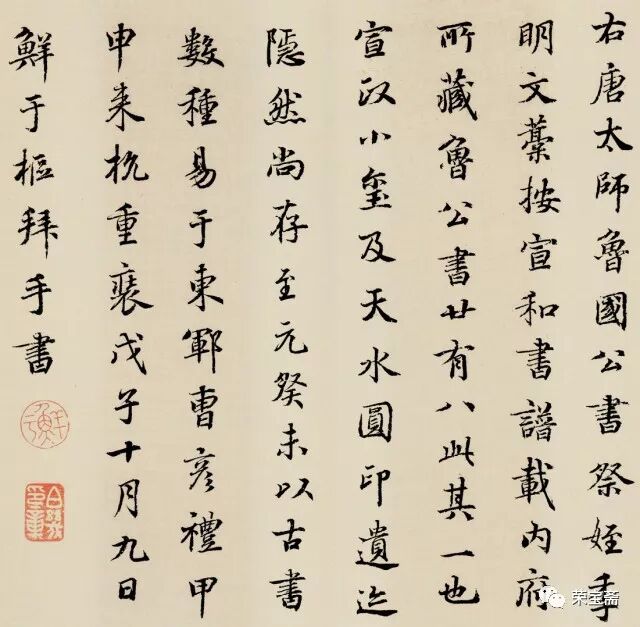 右唐太師魯國公書祭姪季
明文藁按宣和書譜載内府
所藏魯公書廿有八此其一也
宣政小璽及天水圓印遺迹
隱然尚存至元癸未以古書
數種易于東鄆曹彦禮甲
申来杭重裝戊子十月九日
鮮于樞拜手書
鮮于
荣宝斋